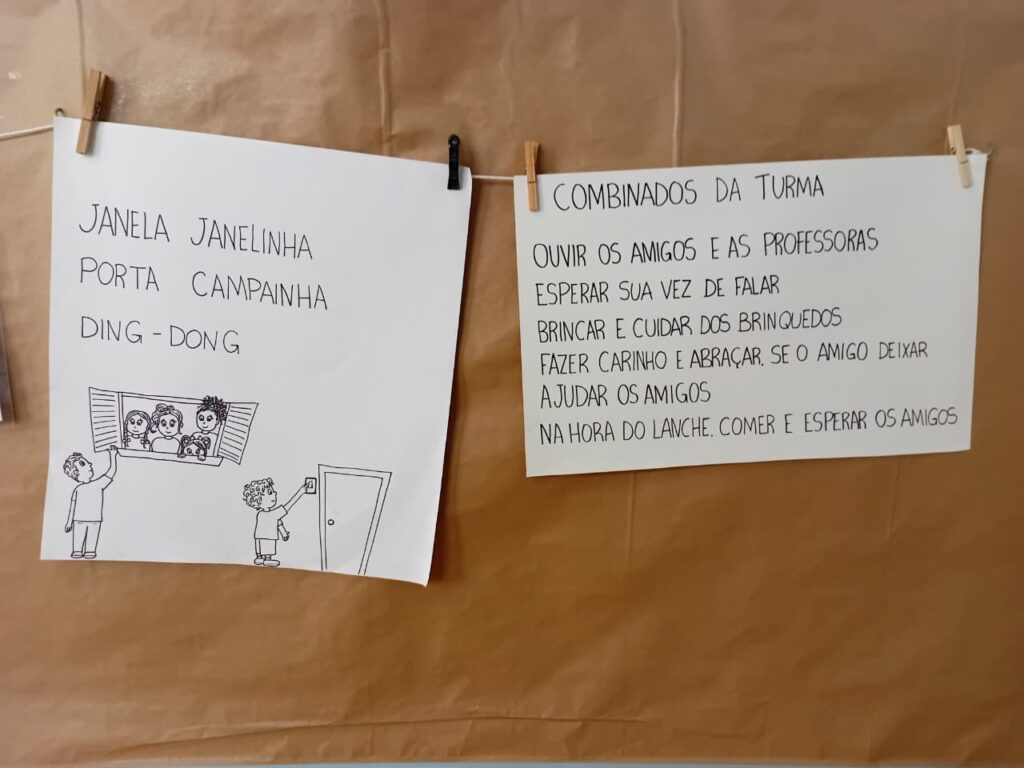 JANELA JANELINHA
PORTA CAMPAINHA
DING-DONG
COMBINADOS DA TURMA
OUVIR OS AMIGOS E AS PROFESSORAS
ESPERAR SUA VEZ DE FALAR
BRINCAR E CUIDAR DOS BRINQUEDOS
FAZER CARINHO E ABRAÇAR, SE O AMIGO DEIXAR
AJUDAR OS AMIGOS
NA HORA DO LANCHE, COMER E ESPERAR OS AMIGOS